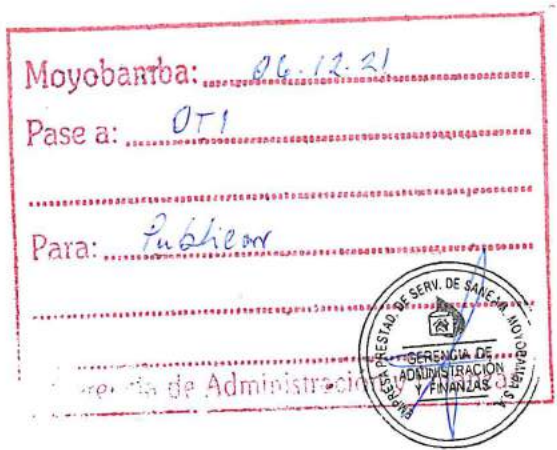 Moyobamba: 06.12.21
Pase a: OTI
Para: Publicar
Gerencia de Administración y
EMPRESA PRESTAD. DE SERV. DE SANEAM. MOYOBAMBA S.A.
GERENCIA DE
ADMINISTRACIÓN
Y FINANZAS